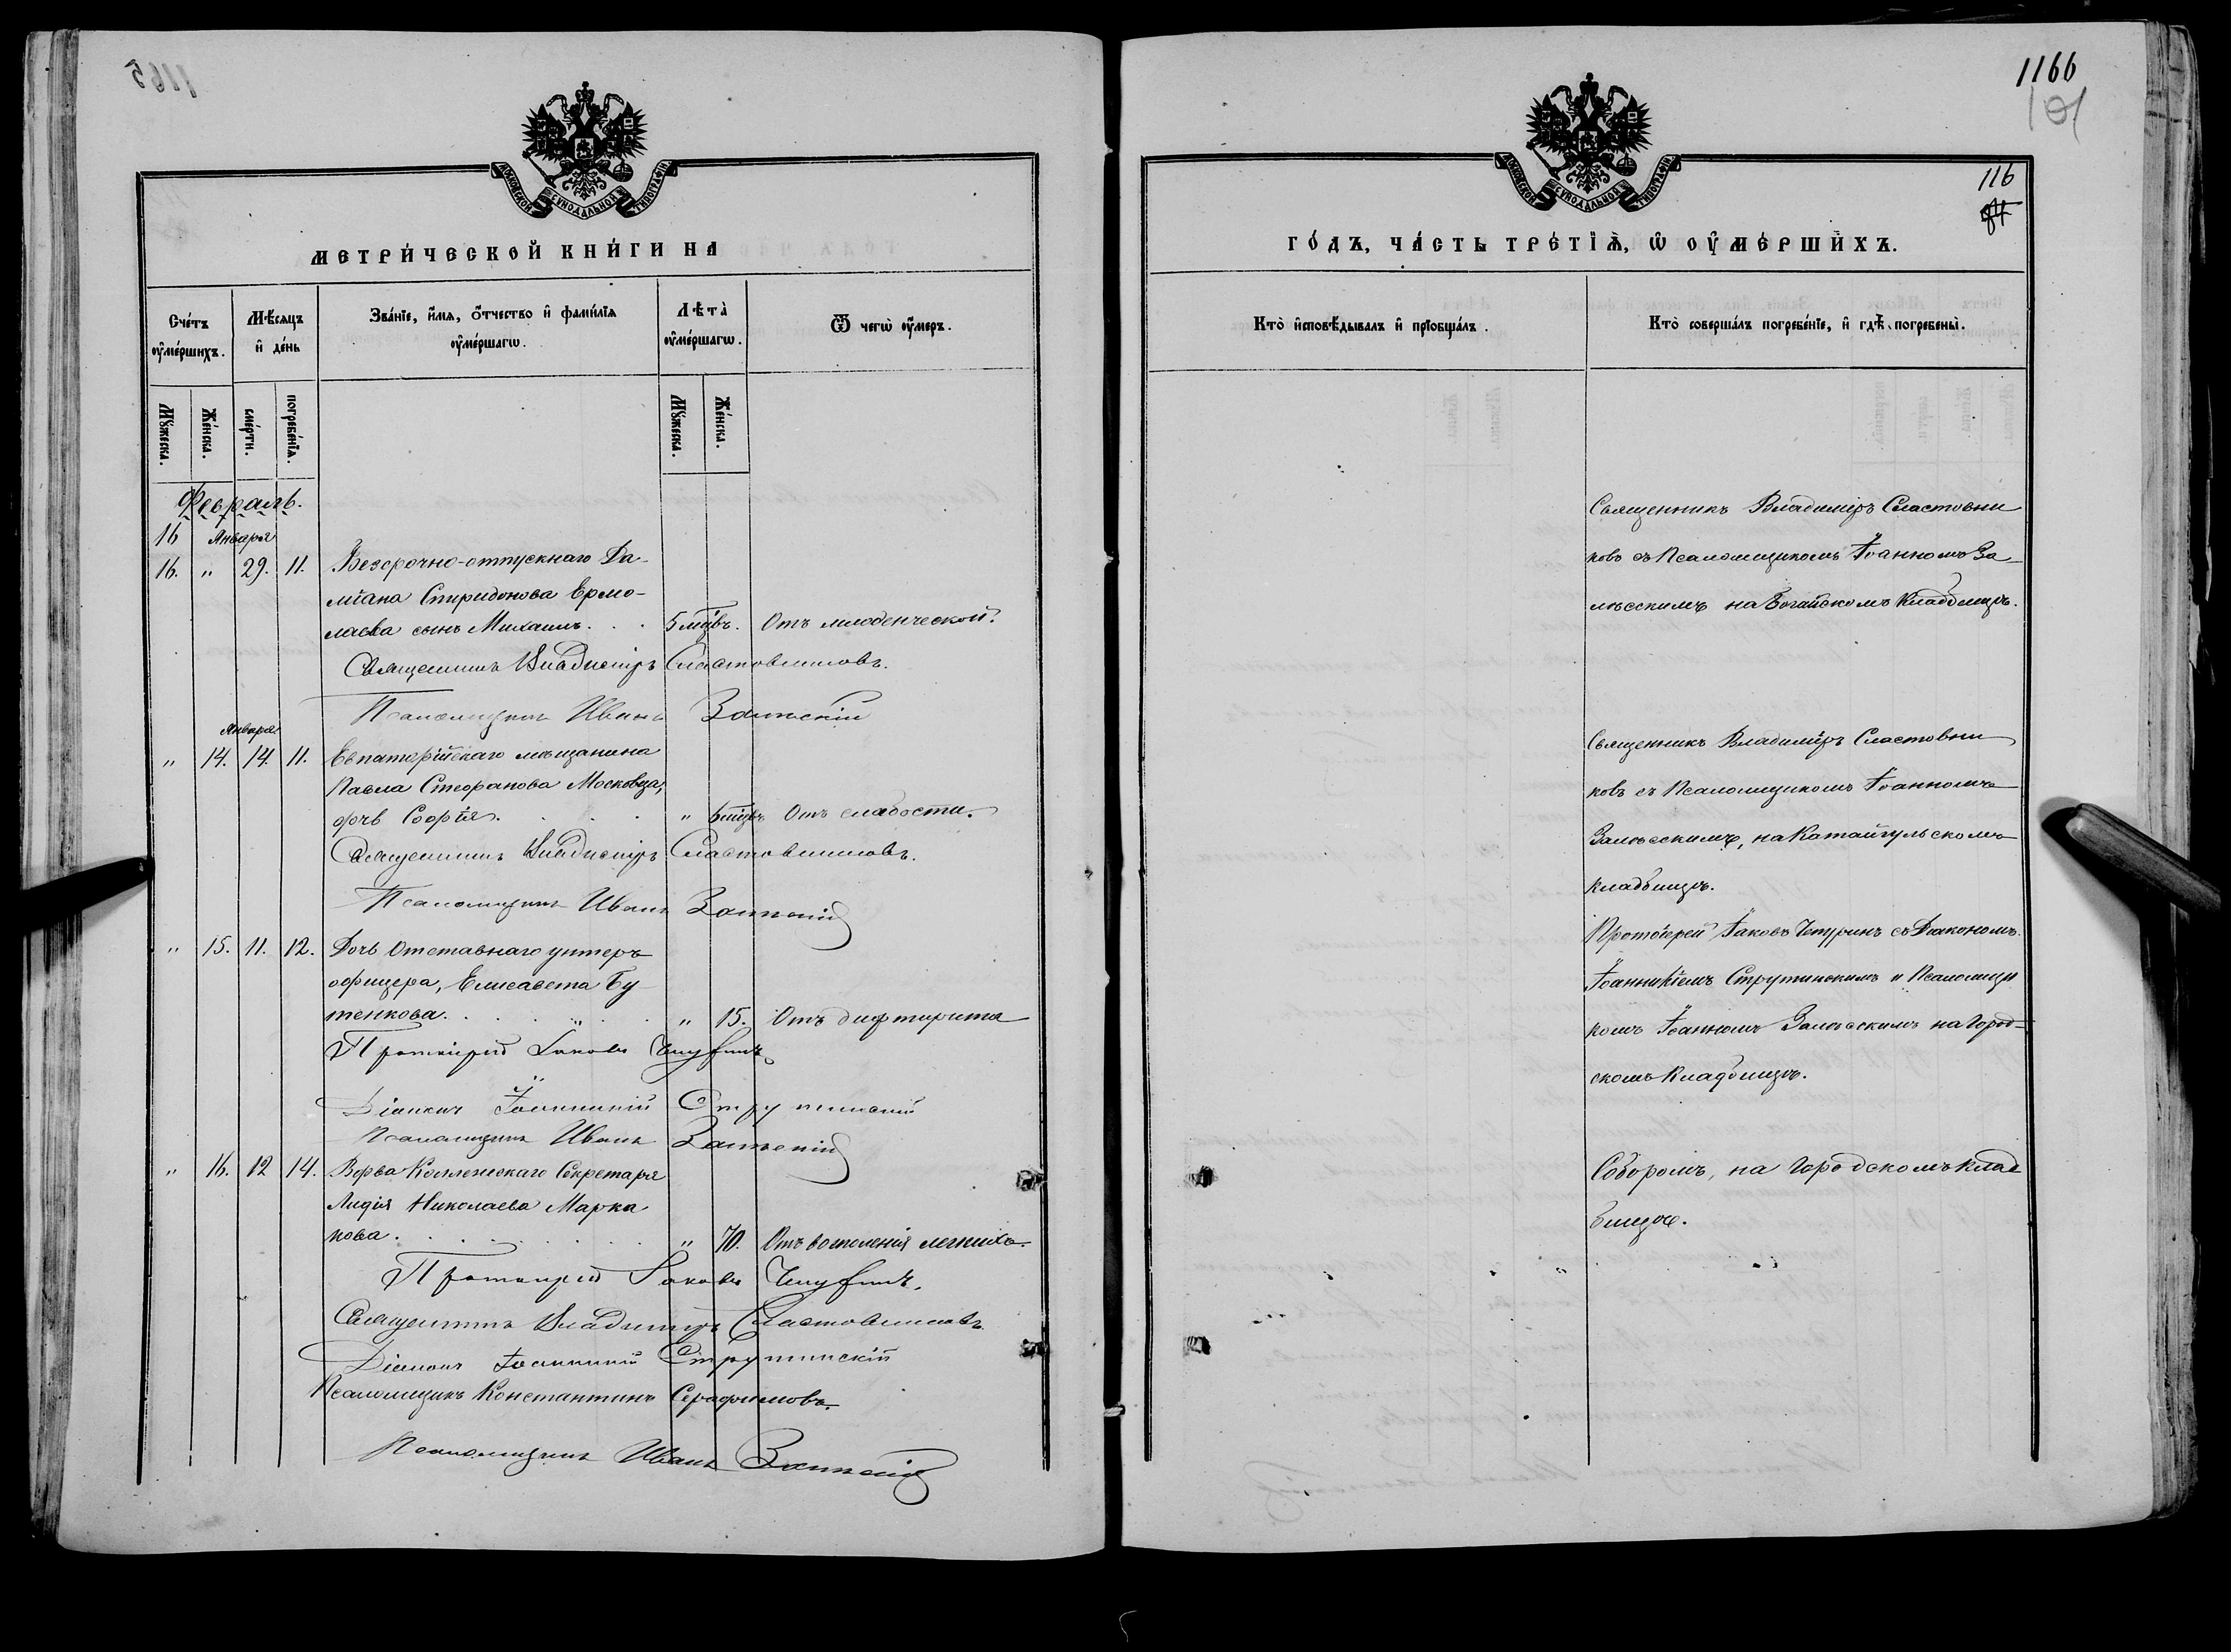 1165
МЕТРИ́ЧЕСКОЙ КНИ́ГИ НА
Сче́тъ оу҆ме́ршихъ.
Мѣ́сяцъ и҆ де́нь
Зва́нїе, и҆́мѧ, ѻ҆́тчество и҆ фами́лїѧ оу҆ме́ршагѡ.
Лѣта̀ оу҆ме́ршагѡ.
Ѿ чегѡ̀ оу҆́меръ.
Мꙋ́жеска.
Же́нска.
сме́рти.
погребе́нїѧ.
Мꙋ́жеска.
Же́нска.
Февраль.
16 Января
16. " 29. 11. Безсрочно-отпускнаго Да-
міана Спиридонова Ермо-
лаева сынъ Михаилъ. . . 5 мцвъ. Отъ млоденческой.
Священникъ Владиміръ Сластовниковъ.
Псаломщикъ Иванъ Залѣскій
Января
" 14. 14. 11. Евпаторійскаго мѣщанина
Павла Стефанова Московца,
дочь Софія. . . . " 6 мцвъ Отъ слабости.
Священникъ Владиміръ Сластовниковъ.
Псаломщикъ Иванъ Залѣскій
" 15. 11. 12. Дочь Отставнаго унтеръ
офицера, Елисавета Бу
тенкова. . . . " 15. Отъ дифтирита
Протоіерей Іаковъ Чепуринъ
Діаконъ Іоанникій Струтинскій
Псаломщикъ Иванъ Залѣскій
" 16. 12 14. Вдова Коллежскаго Секретаря
Лидія Николаева Марка
нова. . . . " 70. Отъ восполенія легкихъ.
Протоіерей Іаковъ Чепуринъ.
Священникъ Владиміръ Сластовниковъ
Діаконъ Іоанникій Струтинскій
Псаломщикъ Константинъ Серафимовъ.
Псаломщикъ Иванъ Залѣскій
1166
101
116
ГО́ДЪ, ЧА́СТЬ ТРЕ́ТЇѦ, Ѡ҆ ОУ҆МЕ́РШИХЪ.
Кто̀ и҆сповѣ́дывалъ и҆ прїѡбща́лъ.
Кто̀ соверша́лъ погребе́нїе, и҆ гдѣ̀ погребены̀.
Священникъ Владиміръ Сластовни
ковъ съ Псаломщикомъ Іоанномъ За-
лѣсскимъ на Богайскомъ Кладбищѣ.
Священникъ Владиміръ Сластовни
ковъ съ Псаломщикомъ Іоанномъ
Залѣсскимъ, на Катайгульскомъ
кладбищѣ.
Протоіерей Іаковъ Чепуринъ съ Діакономъ
Іоанникіемъ Струтинскимъ и Псаломщи
комъ Іоанномъ Залѣсскимъ на Город-
скомъ Кладбищѣ.
Соборомъ, на Городскомъ клад
бищѣ.